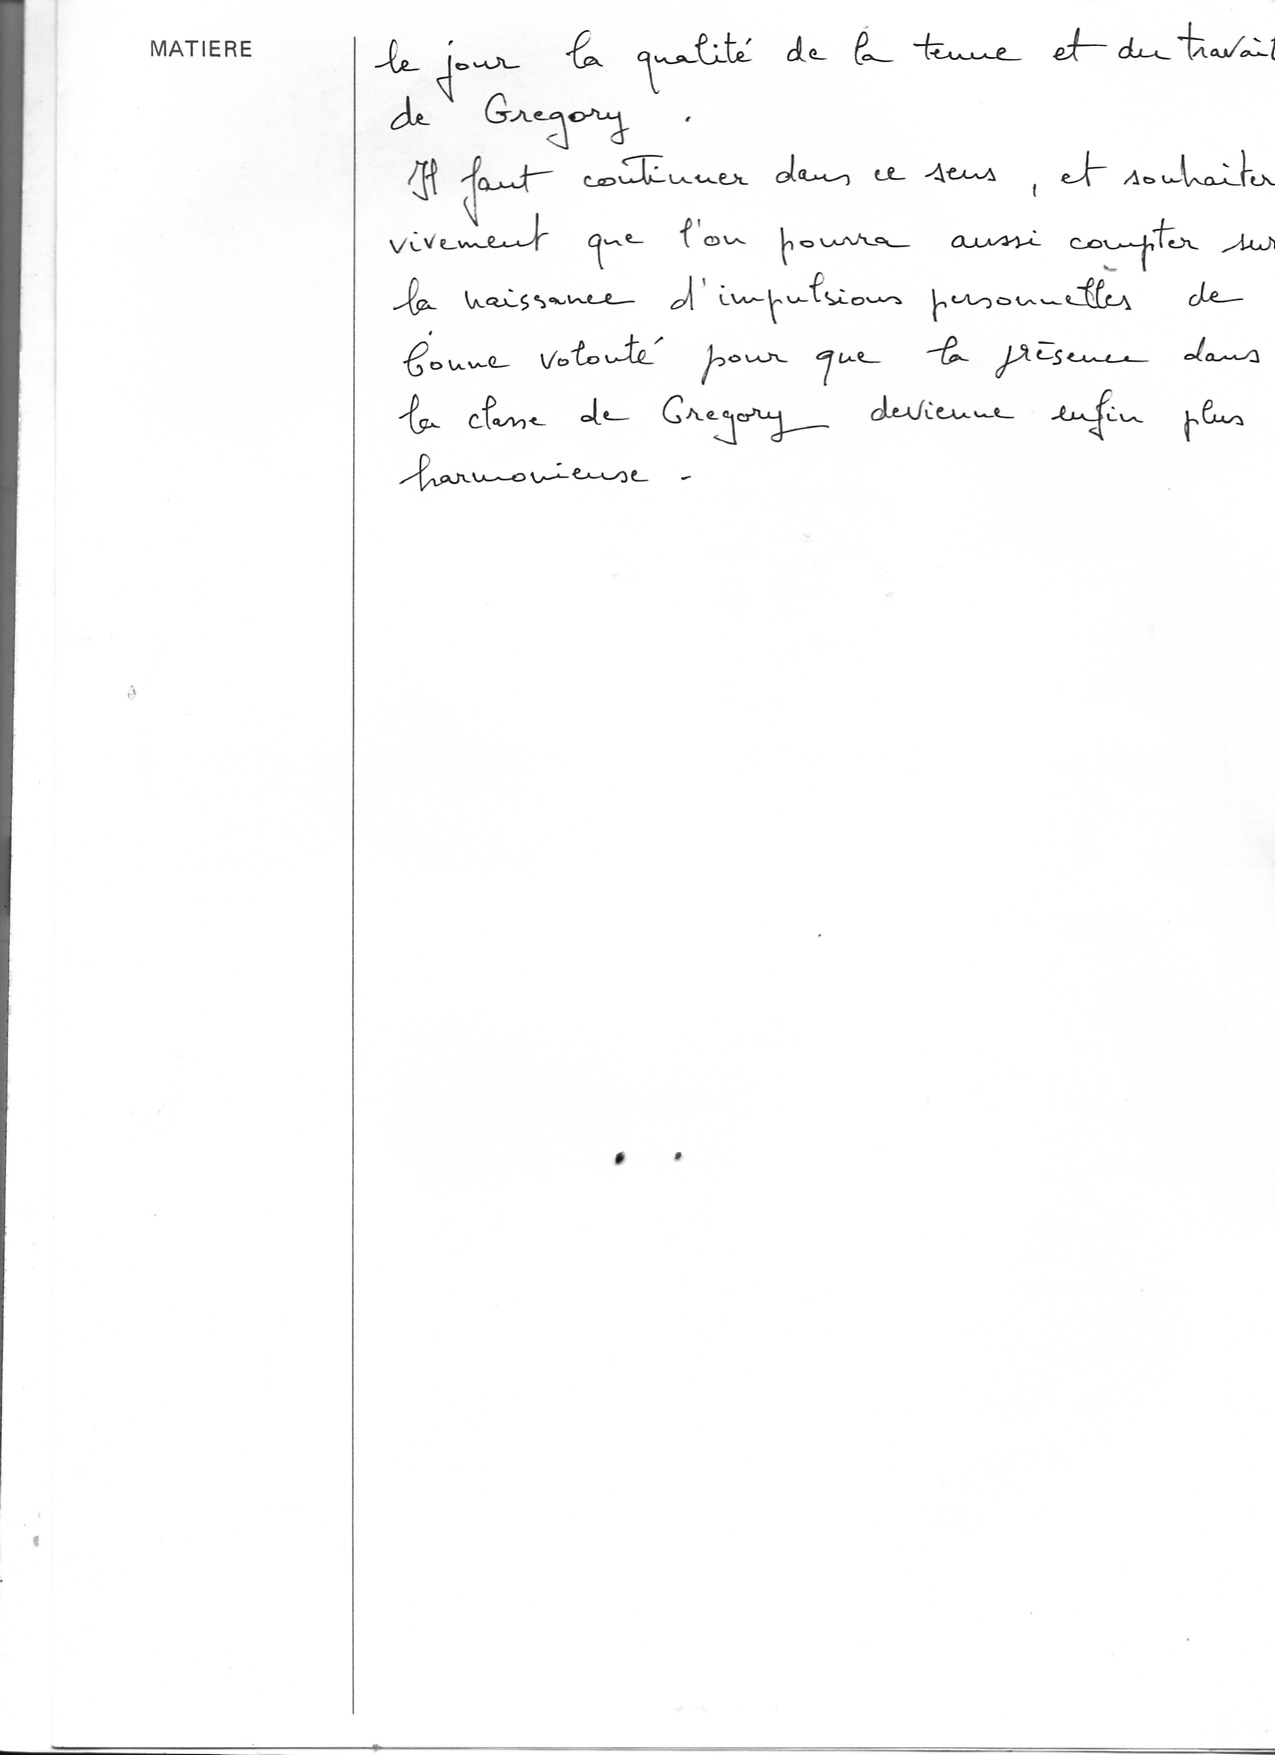 MATIERE
le jour la qualité de la tenue et du travail
de Gregory .
Il faut continuer dans ce sens , et souhaiter
vivement que l'on pourra aussi compter sur
la naissance d'impulsions personnelles de
bonne volonté pour que la présence dans
la classe de Gregory devienne enfin plus
harmonieuse -